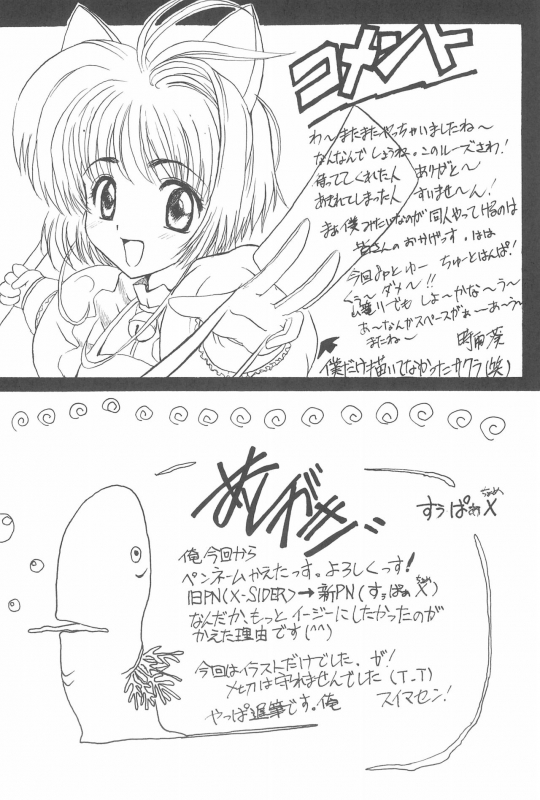 コメント
わ〜またまたやっちゃいましたね〜
なんなんでしょうね。このルーズさわ!
待っててくれた人 ありがと〜
あせれてしまった人 すいませ〜ん!
まぁ僕みたいなのが同人やってけるのは
皆さんのおかげっす。はは
今回みとゅー ちゅーとはんぱ!
くぅ〜 ダメ〜!!
でも しよ〜かな〜う〜
あ〜なんかスペースがぁ〜あ〜う〜
またね〜
僕だけ描いてなかったサクラ(笑)
あとがき
すぅぱぁX
俺、今回から
ペンネームかえたっす。よろしくっす!
旧PN(X-SIDER)→新PN(すぅぱぁX)
なんだか、もっとイージーにしたかったのが
かえた理由です(^^)
今回はイラストだけでした、が!
〆切は守れませんでした(T_T)
スイマセン!
やっぱ遅筆です。俺